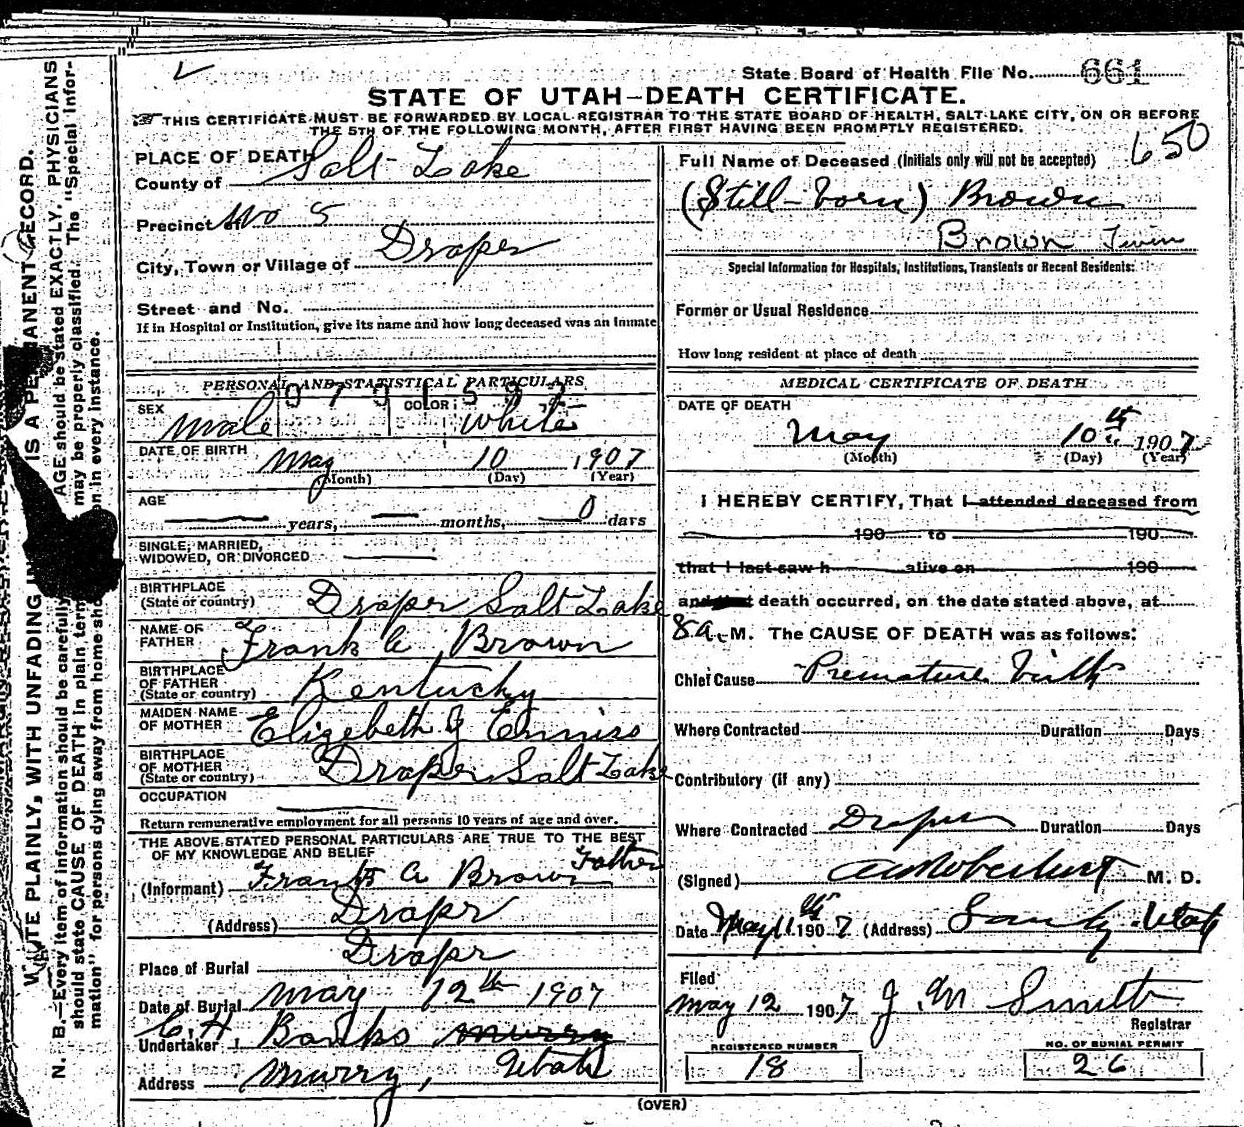 State Board of Health File No. 661
STATE OF UTAH—DEATH CERTIFICATE.
THIS CERTIFICATE MUST BE FORWARDED BY LOCAL REGISTRAR TO THE STATE BOARD OF HEALTH, SALT LAKE CITY, ON OR BEFORE
THE 5TH OF THE FOLLOWING MONTH, AFTER FIRST HAVING BEEN PROMPTLY REGISTERED.
650
PLACE OF DEATH
County of Salt Lake
Precinct of No 5
City, Town or Village of Draper
Street and No.
If in Hospital or Institution, give its name and how long deceased was an inmate
PERSONAL AND STATISTICAL PARTICULARS
SEX male COLOR White
DATE OF BIRTH May 10 1907
(Month) (Day) (Year)
AGE years, months, 0 days
SINGLE, MARRIED,
WIDOWED, OR DIVORCED
BIRTHPLACE
(State or country) Draper Salt Lake
NAME OF
FATHER Frank A Brown
BIRTHPLACE
OF FATHER
(State or country) Kentucky
MAIDEN NAME
OF MOTHER Elizebeth J Enniss
BIRTHPLACE
OF MOTHER
(State or country) Draper Salt Lake
OCCUPATION
Return remunerative employment for all persons 10 years of age and over.
THE ABOVE STATED PERSONAL PARTICULARS ARE TRUE TO THE BEST
OF MY KNOWLEDGE AND BELIEF
(Informant) Frank A Brown Father
(Address) Drapr
Place of Burial Drapr
Date of Burial May 12th 1907
Undertaker C. H. Banks murry
Address murry, Utah
Full Name of Deceased (Initials only will not be accepted)
(Still-born) Brown
Brown Twin
Special Information for Hospitals, Institutions, Transients or Recent Residents:
Former or Usual Residence
How long resident at place of death
MEDICAL CERTIFICATE OF DEATH
DATE OF DEATH
May 10th 1907
(Month) (Day) (Year)
I HEREBY CERTIFY, That I attended deceased from
190 to 190
that I last saw h alive on 190
and that death occurred, on the date stated above, at
8 a. M. The CAUSE OF DEATH was as follows:
Chief Cause Premature birth
Where Contracted Duration Days
Contributory (if any)
Where Contracted Draper Duration Days
(Signed) M. D.
Date May 11th 1907 (Address) Sandy Utah
Filed
May 12 1907 J. M Smith
Registrar
REGISTERED NUMBER NO. OF BURIAL PERMIT
18 26
(OVER)
WRITE PLAINLY, WITH UNFADING IS A PERMANENT RECORD.
N. B.—Every item of information should be carefully AGE should be stated EXACTLY. PHYSICIANS
should state CAUSE OF DEATH in plain term may be properly classified. The "Special Infor-
mation" for persons dying away from home sho on in every instance.